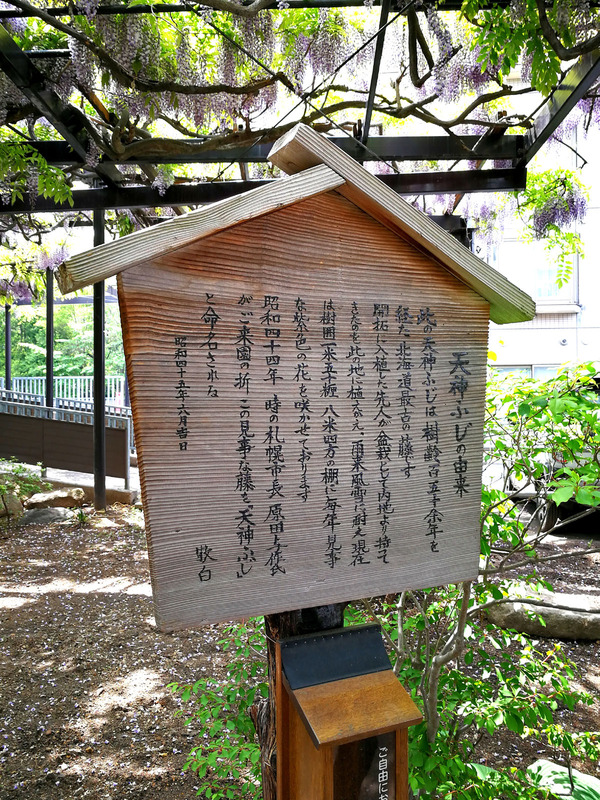 天神ふじの由来
此の天神ふじは樹齢百五十余年を
経た北海道最古の藤です
開拓に入植した先人が盆栽として内地より持て
きたのを此の地に植なえ 雨来風雪に耐え現在
は樹囲一米五十糎 八米四方の棚に毎年見事
な紫色の花を咲かせております
昭和四十四年 時の札幌市長 原田与作氏
がご来園の折 この見事な藤を「天神ふじ」
と命名された
昭和四十五年六月吉日
敬白
ご自由にお